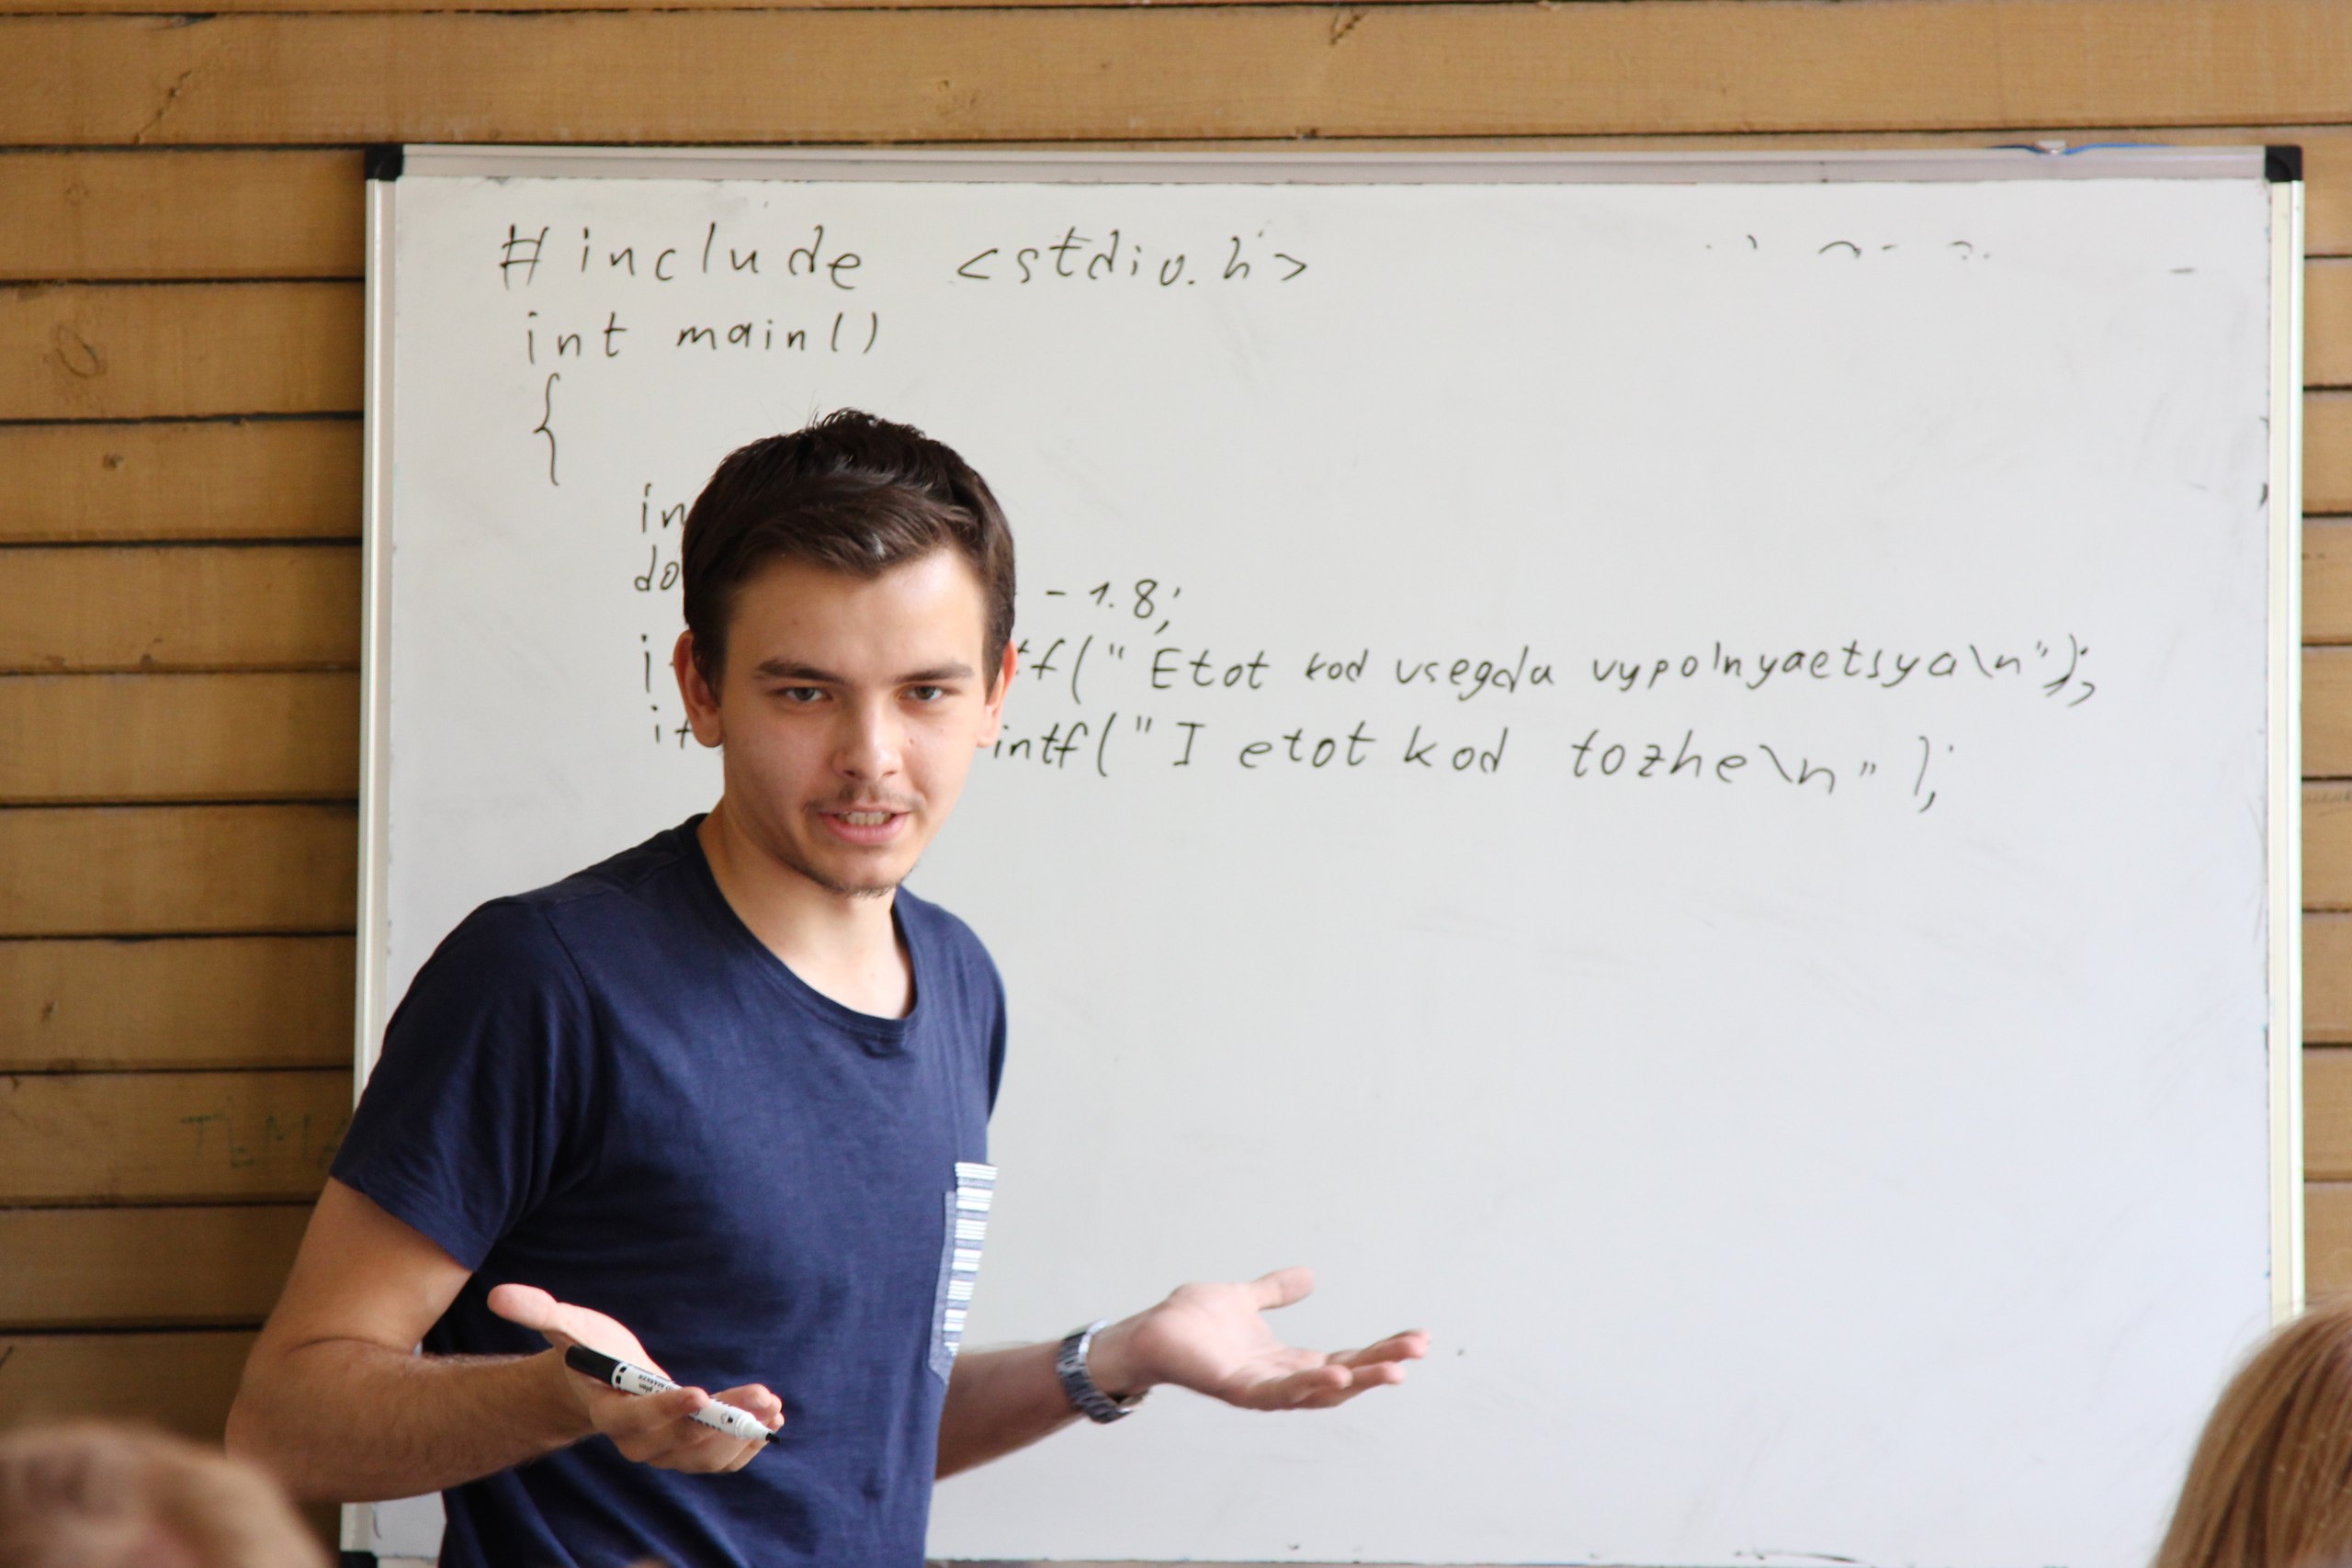 #include <stdio.h>
int main()
{
in
do - 1.8;
tf("Etot kod vsegda vypolnyaetsya\n");
if intf("I etot kod tozhe\n");
TEMA